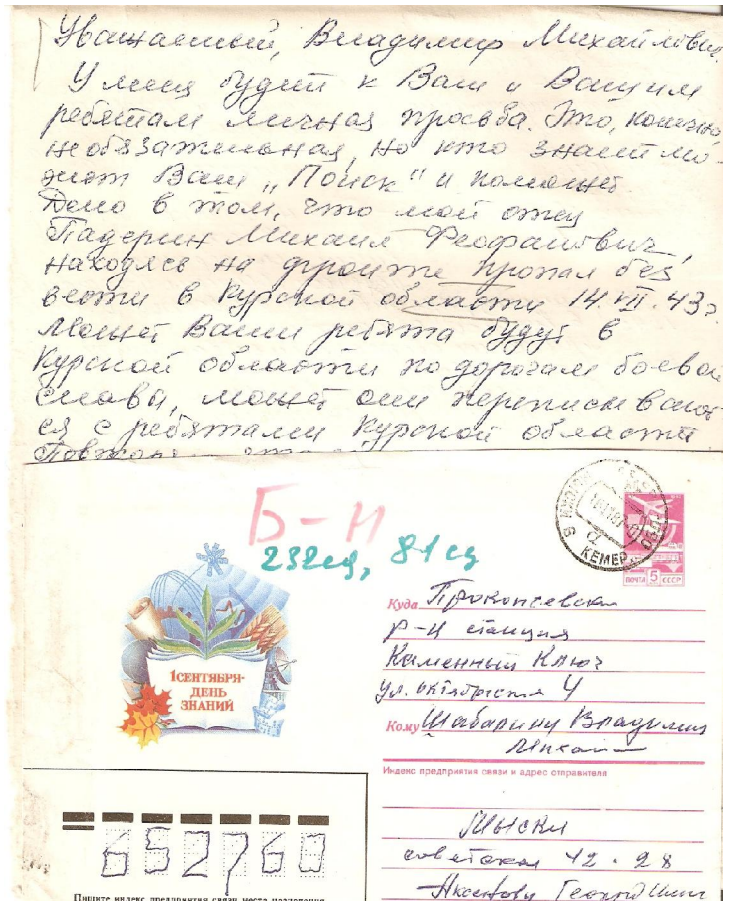 Уважаемый, Владимир Михайлович
У меня будет к Вам и Вашим
ребятам личная просьба. Это, конечно,
необязательная, но кто знает мо-
жет Ваш „Поиск" и поможет
Дело в том, что мой отец
Падерин Михаил Феофанович,
находясь на фронте пропал без
вести в Курской области 14.VII.43г
Может Ваши ребята будут в
Курской области по дорогам боевой
славы, может они переписывают-
ся с ребятами Курской области
Б-Н
232сд, 81сд
КЕМЕР
ПОЧТА 5 СССР
1 СЕНТЯБРЯ-
ДЕНЬ
ЗНАНИЙ
Куда Прокопьевский
р-н станция
Каменный Ключ
ул. Октябрьская 4
Кому Шабарину Владимиру
Индекс предприятия связи и адрес отправителя
Мыски
советская 42-28
652760
Пишите индекс предприятия связи места назначения